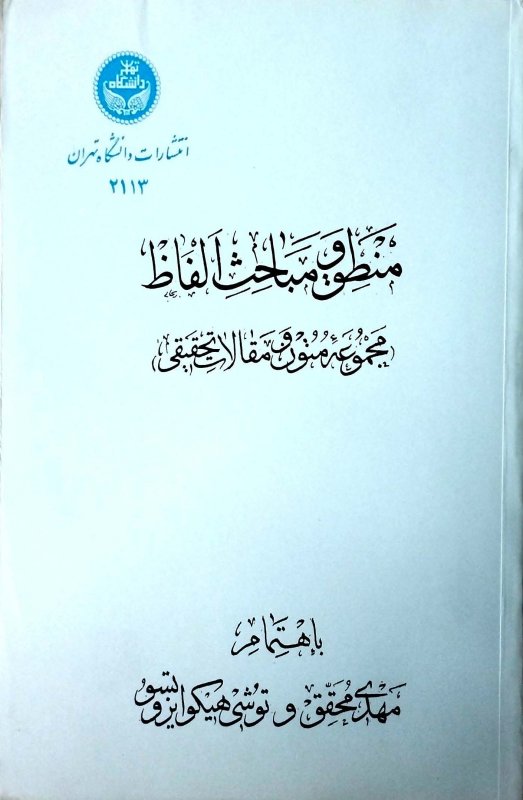 دانشگاه تهران
انتشارات دانشگاه تهران
۲۱۱۳
مَنطِق وَ مَبَاحِثِ اَلفَاظ
(مَجمُوعَهٔ مُتُون وَ مَقَالاتِ تَحقِیقِی)
بِاِهتِمَامِ
مَهدِی مُحَقِّق وَ تُوشِی هِیکو ایزوتسو